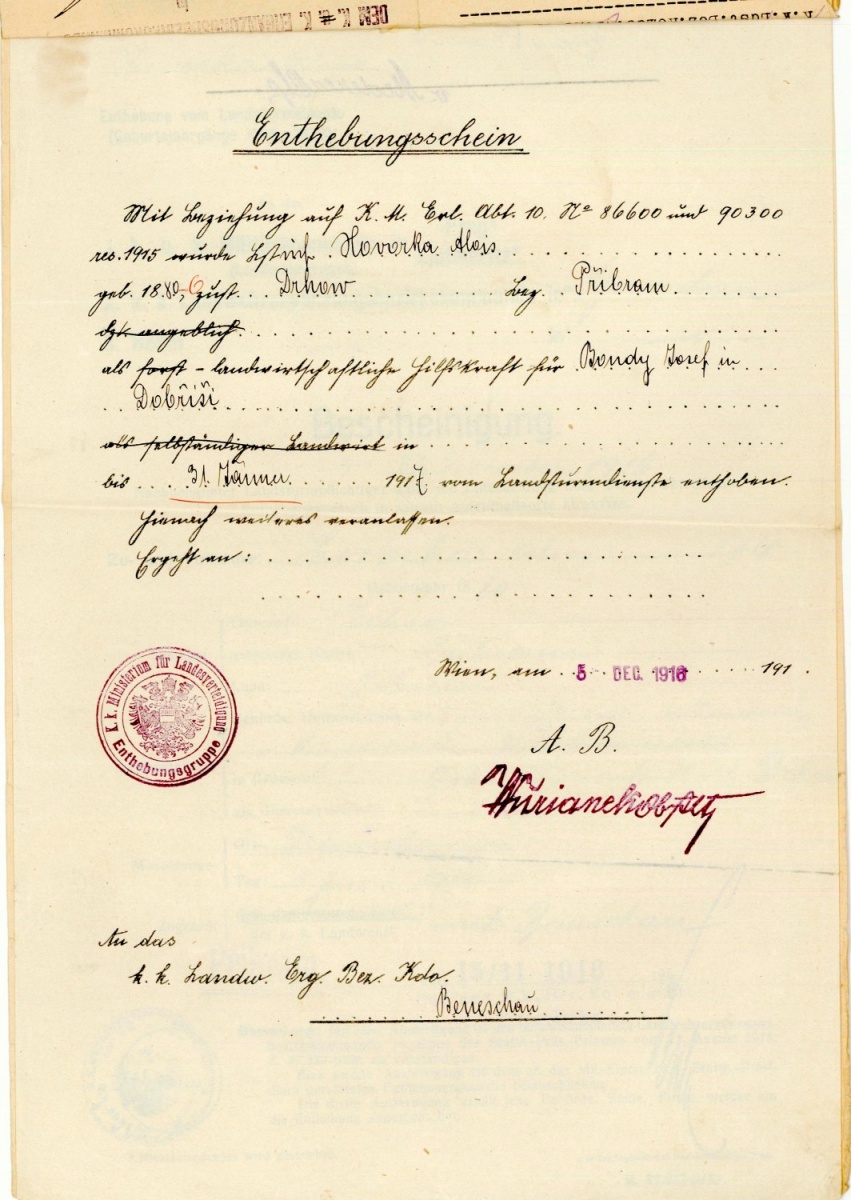 DEM K. u. K. ERGÄNZUNGSBEZIRKSKOMMANDO
in
Enthebungsschein
Mit Beziehung auf K. M. Erl. Abt. 10. Nº 86600 und 90300
res. 1915 wurde Lstinf. Hovorka Alois
geb. 1880, zust. Drhow Bez. Příbram
dzt. angeblich
als forst - landwirtschaftliche Hilfskraft für Bondy Josef in
Dobříši
als selbständiger Landwirt in
bis 31. Jänner 1917. vom Landsturmdienste enthoben.
Hienach weiteres veranlassen.
Ergeht an:
Wien, am 5 - DEC. 1916 191 .
K. k. Ministerium für Landesverteidigung
Enthebungsgruppe
A. B.
An das
k. k. Landw. Erg. Bez. Kdo.
Beneschau